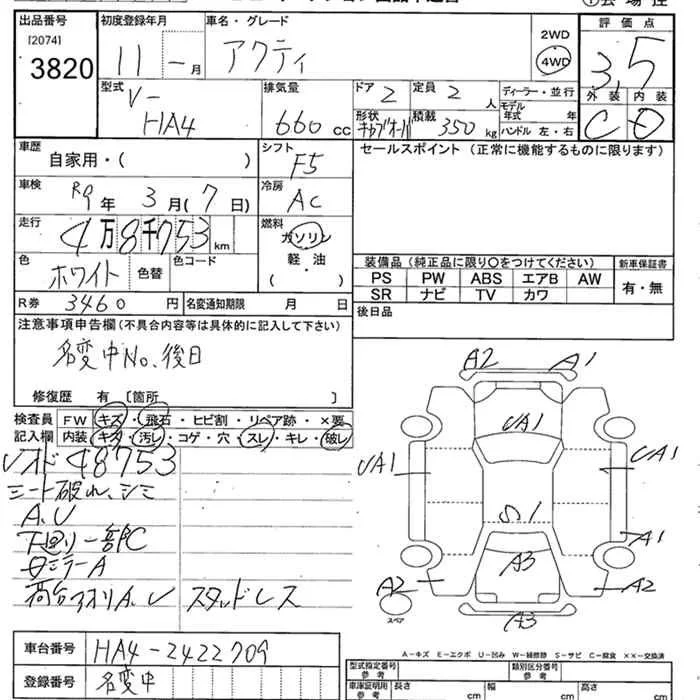 出品番号 初度登録年月 車名・グレード 評価点
[2074]
3820
11 - 月 アクティ 2WD 4WD 3,5
型式 排気量 ドア 定員 ディーラー・並行 外装 内装
V- HA4 660 cc 2 2 人 モデル年式 年 C D
形状 積載 350 kg ハンドル 左・右
車歴 シフト セールスポイント (正常に機能するものに限ります)
自家用・( ) F5
車検 R9 年 3 月( 7 日) 冷房 AC
走行 4万8千753 km 燃料 ガソリン
軽・油
( )
色 ホワイト 色替 色コード
装備品 (純正品に限り○をつけてください) 新車保証書
PS PW ABS エアB AW 有・無
SR ナビ TV カワ
R券 3460 円 名変通知期限 月 日 後日品
注意事項申告欄 (不具合内容等は具体的に記入して下さい)
名変中No.後日
修復歴 有 〔箇所 〕
検査員 FW キズ・飛石・ヒビ割・リペア跡・×要
記入欄 内装 キタ・汚レ・コゲ・穴・スレ・キレ・破レ
48753
シート破れ、シミ
A.U
下回り一部C
ミラーA
荷台アオリA.U スタッドレス
A2 A1
UA1
UA1 UA1
S1
A1
A3
A2 A2
スペア
A3
A-キズ E-エクボ U-凹み W-補修跡 S-サビ C-腐食 ××-交換済
車台番号 HA4-2422709
登録番号 名変中
型式指定番号 参考 類別区分番号 参考
車庫証明用 参考 長さ cm 幅 cm 高さ cm